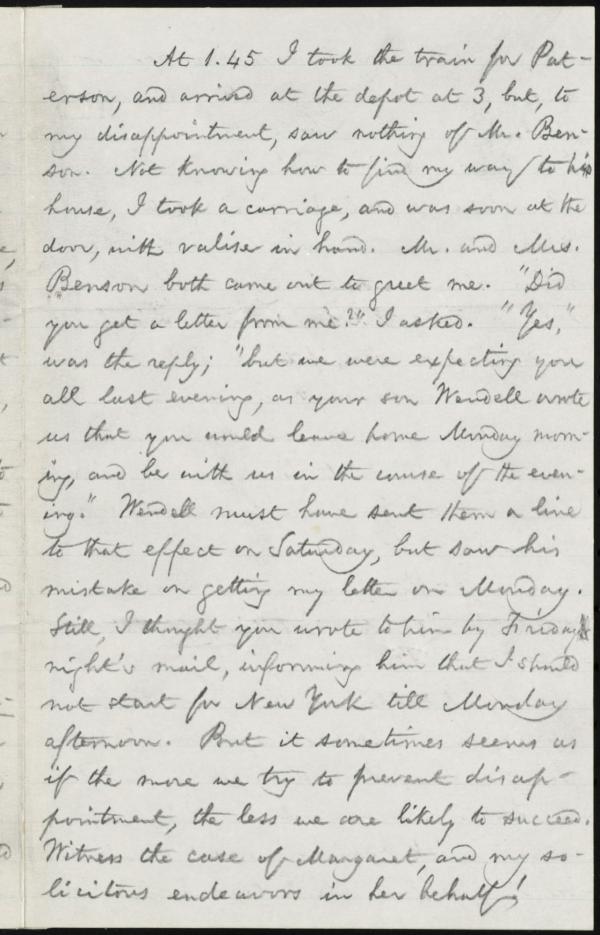 At 1.45 I took the train for Pat-
erson, and arrived at the depot at 3, but, to
my disappointment, saw nothing of Mr. Ben-
son. Not knowing how to find my way to his
house, I took a carriage, and was soon at the
door, with valise in hand. Mr. and Mrs.
Benson both came out to greet me. "Did
you get a letter from me?" I asked. "Yes,"
was the reply; "but we were expecting you
all last evening, as your son Wendell wrote
us that you would leave home Monday morn-
ing, and be with us in the course of the even-
ing." Wendell must have sent them a line
to that effect on Saturday, but saw his
mistake on getting my letter on Monday.
Still, I thought you wrote to him by Friday
night's mail, informing him that I should
not start for New York till Monday
afternoon. But it sometimes seems as
if the more we try to prevent disap-
pointment, the less we are likely to succeed.
Witness the case of Margaret, and my so-
licitous endeavors in her behalf!